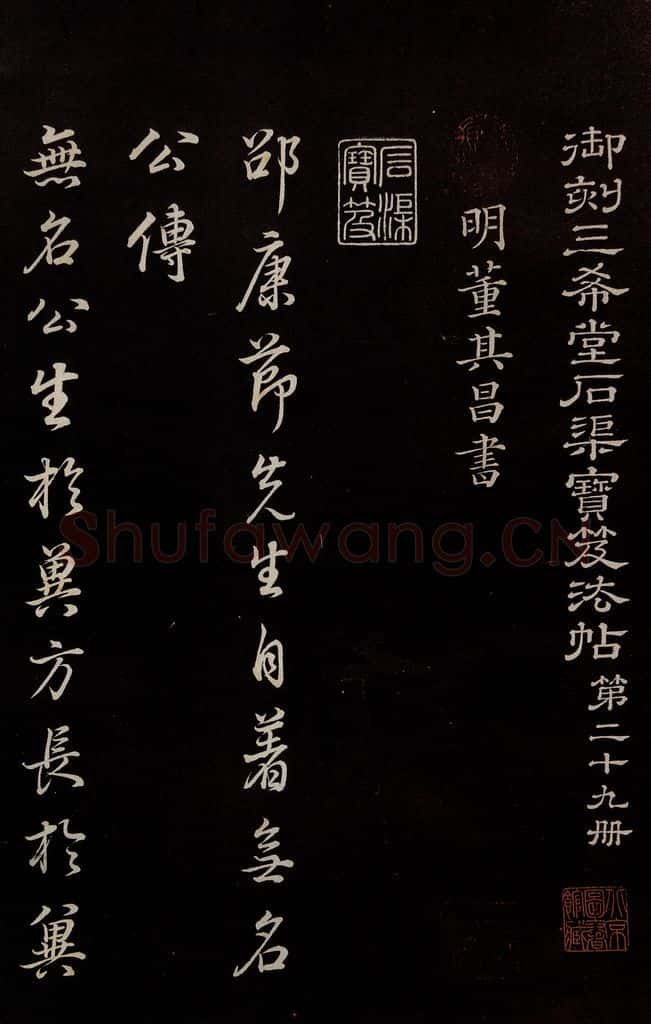 御刻三希堂石渠寶笈法帖 第二十九册
明董其昌書
石渠寶笈
邵康節先生自著無名
公傳
無名公生於冀方長於冀
Shufawang.CN